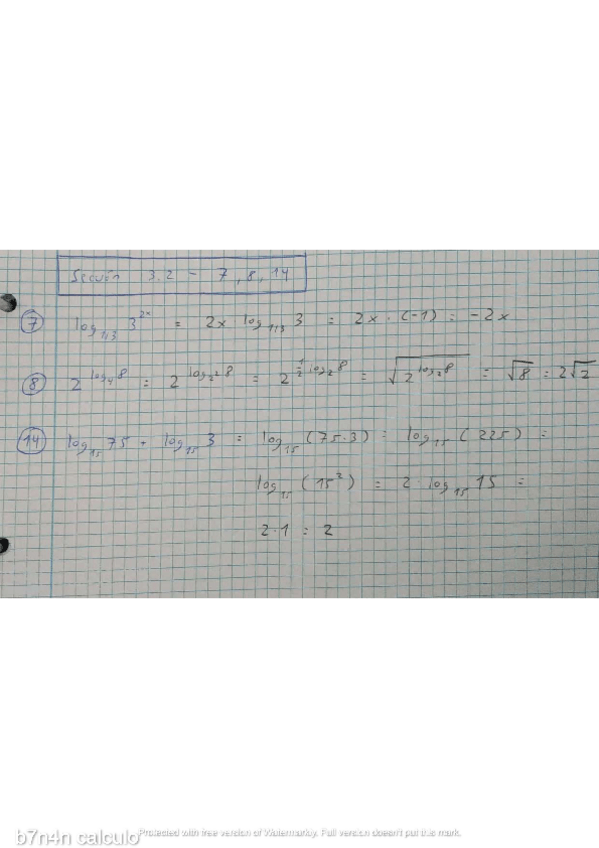 Sección 3.2 - 7, 8, 14
7 log_{1/3} 3^{2x} = 2x · log_{1/3} 3 = 2x · (-1) = -2x
8 2^{log_4 8} = 2^{log_{2^2} 8} = 2^{\frac{1}{2} log_2 8} = \sqrt{2^{log_2 8}} = √8 = 2√2
14 log_{15} 75 + log_{15} 3 = log_{15} (75·3) = log_{15} (225) =
log_{15} (15^2) = 2 log_{15} 15 =
2·1 = 2
b7n4n calculo
Protected with free version of Watermarkly. Full version doesn't put this mark.